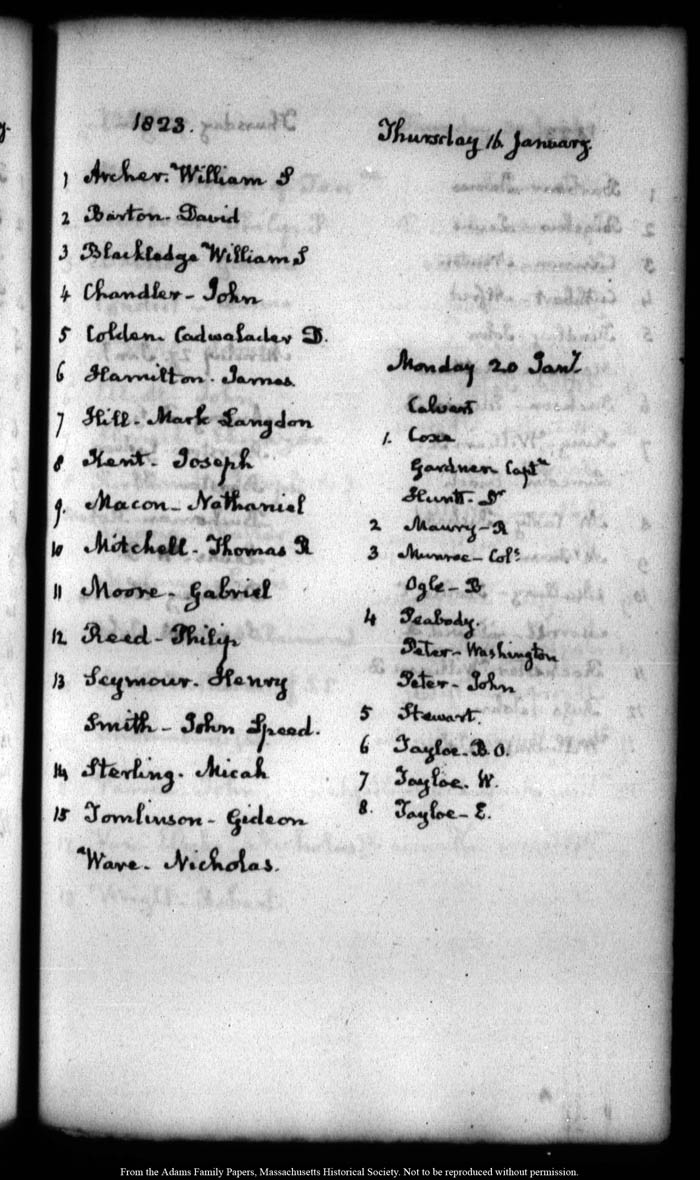 1823.
Thursday 16. January.
1 Archer. William S
2 Barton. David
3 Blackledge William S
4 Chandler - John
5 Colden. Cadwalader D.
6 Hamilton. James
7 Hill. Mark Langdon
8 Kent. Joseph
9. Macon - Nathaniel
10 Mitchell - Thomas R
11 Moore - Gabriel
12 Reed - Philip
13 Seymour. Henry
Smith - John Speed.
14 Sterling. Micah
15 Tomlinson - Gideon
Ware. Nicholas.
Monday 20 Jany.
Calvert
1. Coxe
Gardner Captn
Hunt. Dr
2 Maury - R
3 Munroe - Cols
Ogle - B
4 Peabody.
Peter - Washington
Peter - John
5 Stewart.
6 Tayloe. B. O.
7 Tayloe. W.
8. Tayloe - E.
From the Adams Family Papers, Massachusetts Historical Society. Not to be reproduced without permission.